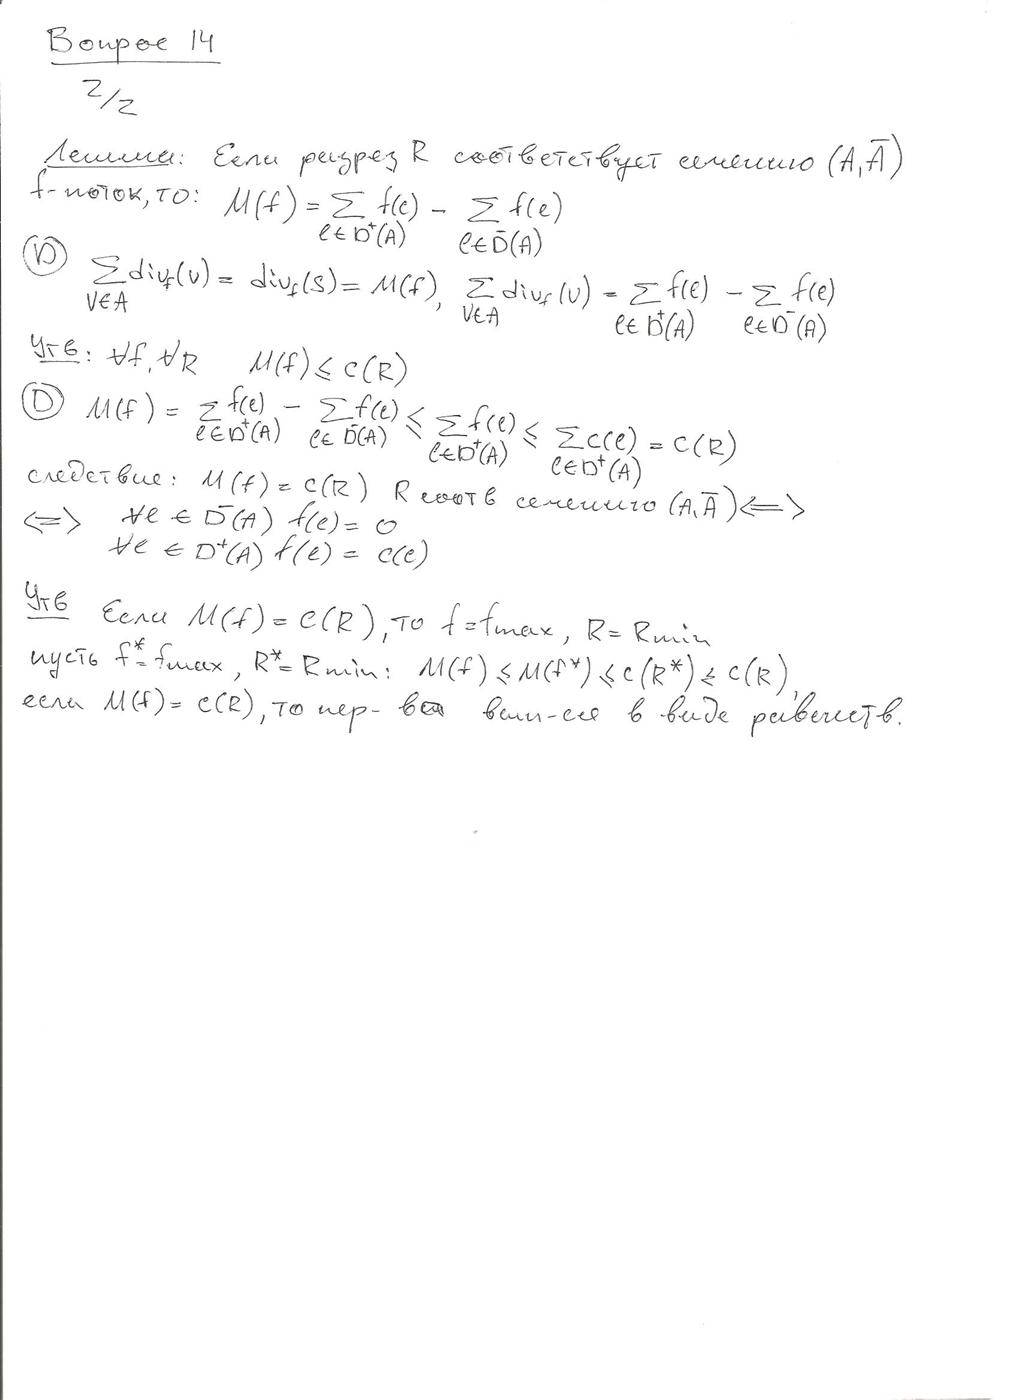 Вопрос 14
2/2
Лемма: Если разрез R соответствует сечению (A, Ā)
f-поток, то: M(f) = Σ f(e) - Σ f(e)
e∈D⁺(A) e∈D⁻(A)
(D) Σ div_f(v) = div_f(S) = M(f), Σ div_f(v) = Σ f(e) - Σ f(e)
v∈A v∈A e∈D⁺(A) e∈D⁻(A)
Утв: ∀f, ∀R M(f) ≤ c(R)
(D) M(f) = Σ f(e) - Σ f(e) ≤ Σ f(e) ≤ Σ c(e) = C(R)
e∈D⁺(A) e∈D⁻(A) e∈D⁺(A) e∈D⁺(A)
следствие: M(f) = c(R) R соотв сечению (A, Ā) <=>
<=> ∀e ∈ D⁻(A) f(e) = 0
∀e ∈ D⁺(A) f(e) = c(e)
Утв Если M(f) = C(R), то f = fmax, R = Rmin
пусть f* = fmax, R* = Rmin: M(f) ≤ M(f*) ≤ c(R*) ≤ c(R),
если M(f) = c(R), то нер-ва вып-ся в виде равенств.